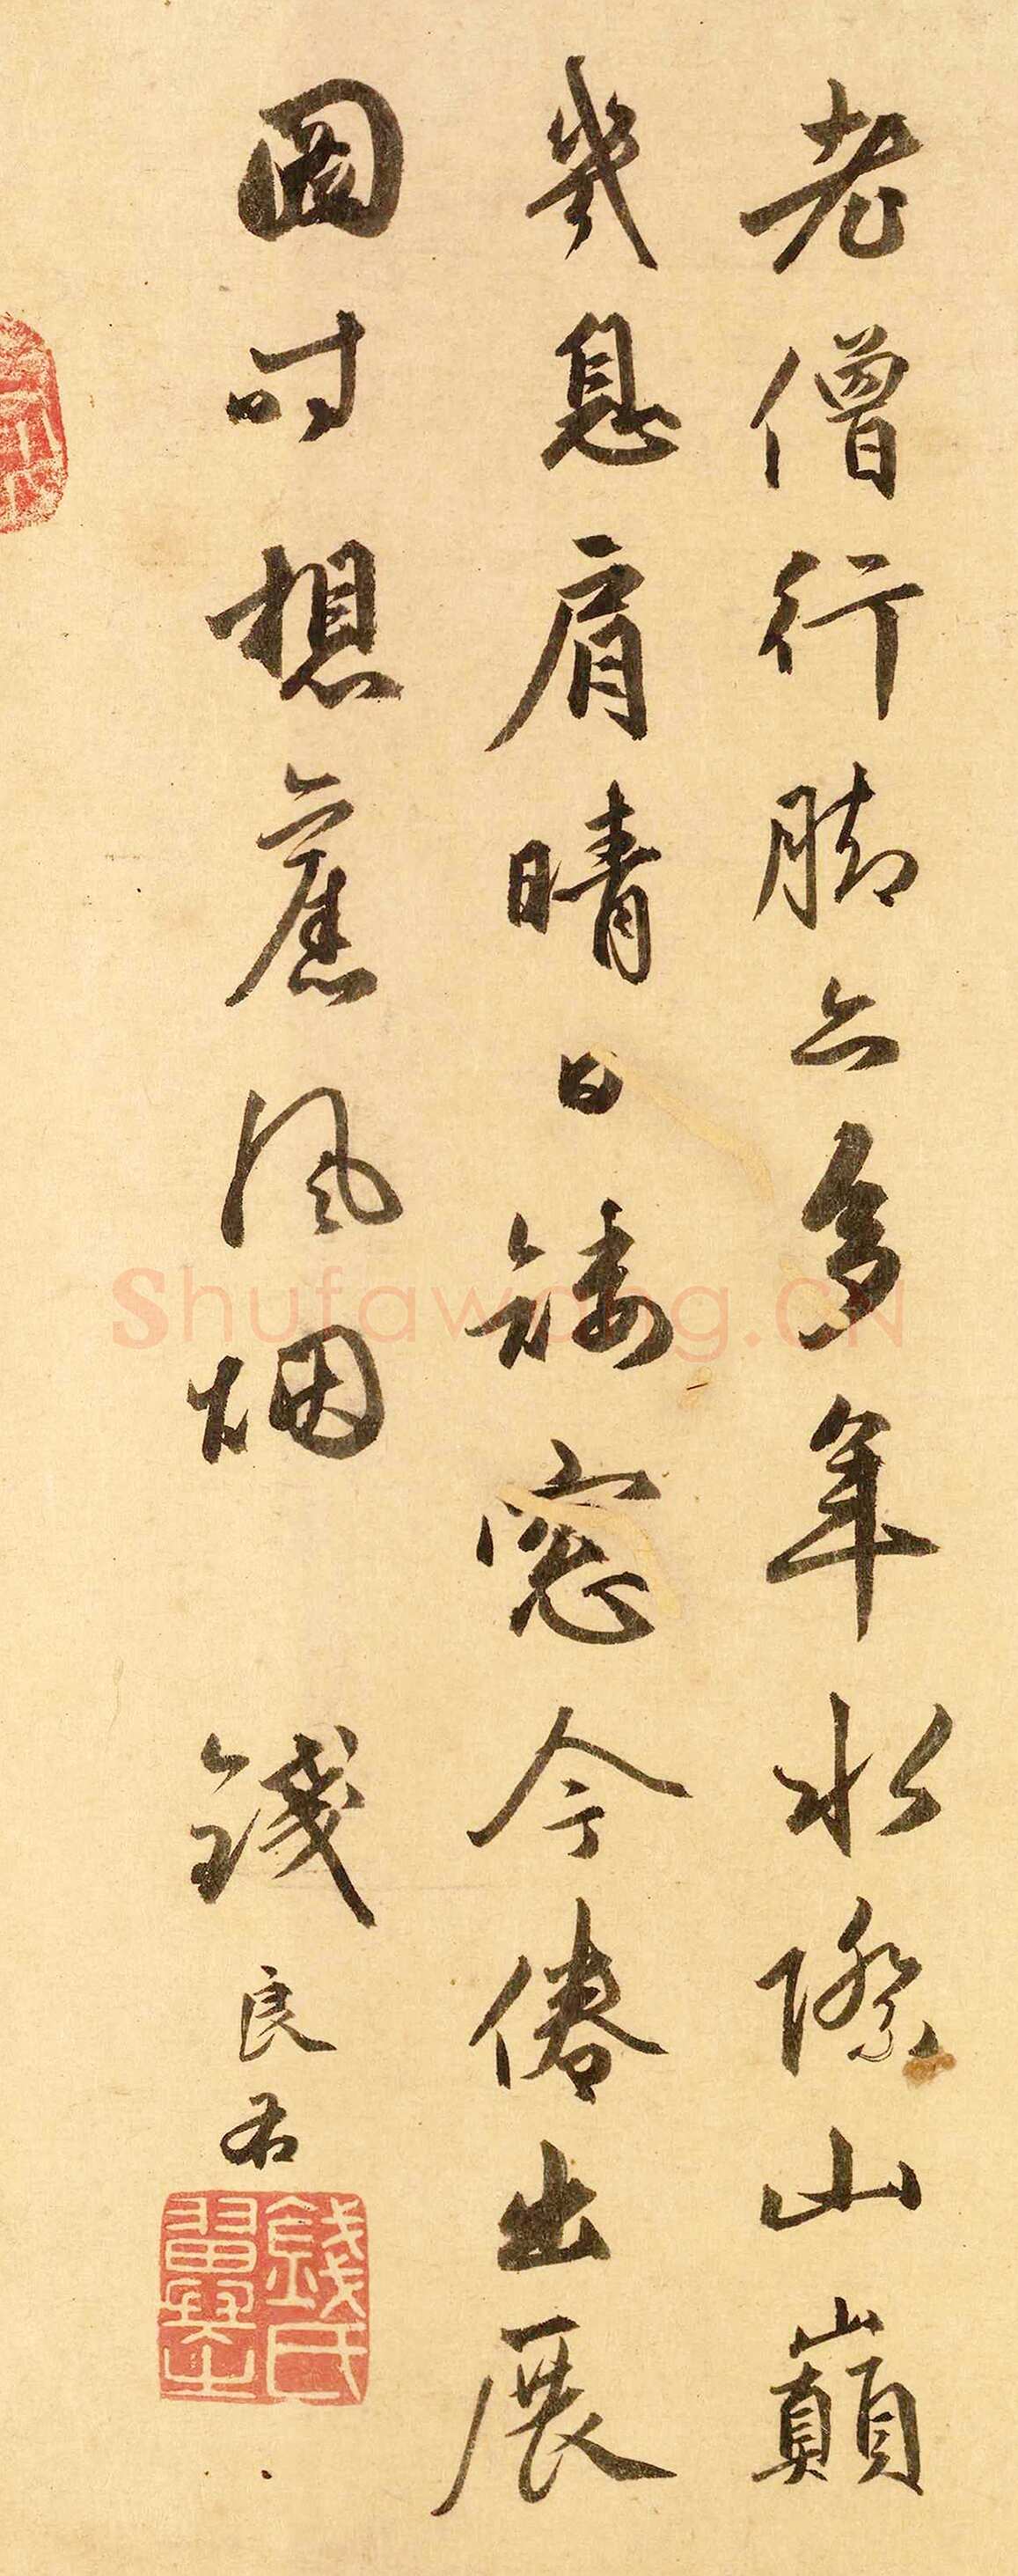 老僧行脚亦多年水際山巔
幾息肩晴日矮窓今倦出展
圖时想舊风烟
錢良右
錢氏翼之
Shufawang.CN